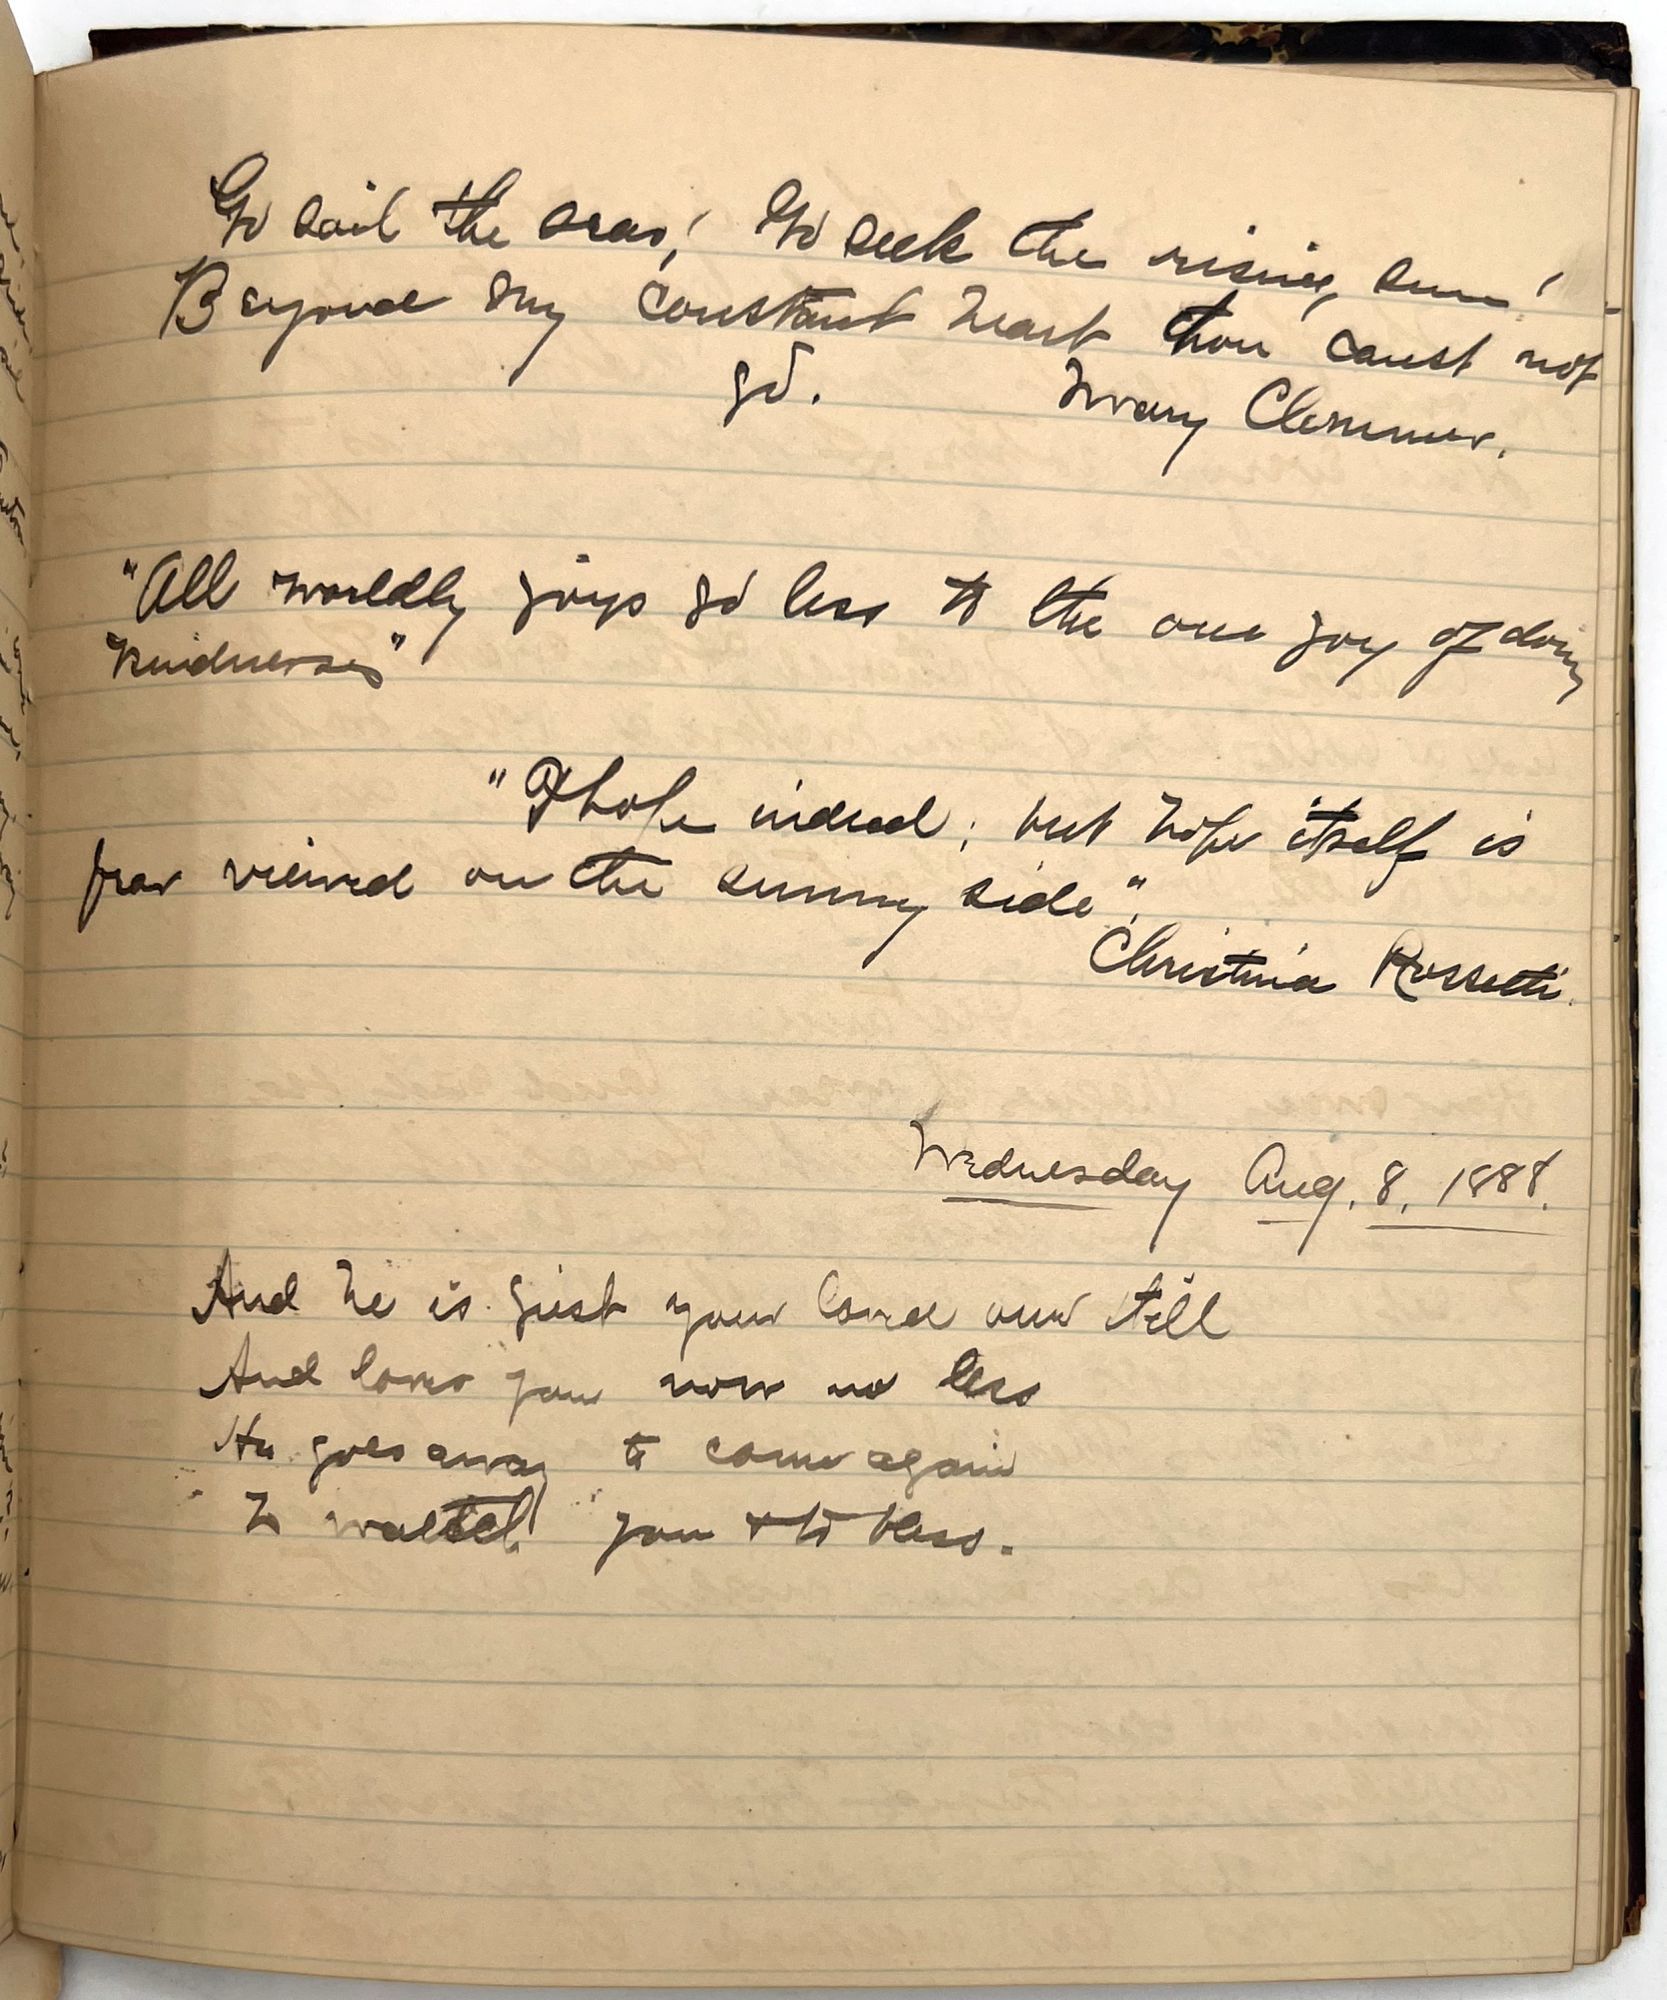 Go sail the seas! Go seek the rising sun!
Beyond my constant heart thou canst not
go. Mary Clemmer.
"All worldly joys go less to the one joy of doing
kindnesses"
"I hope indeed; but hope itself is
fear viewed on the sunny side".
Christina Rossetti.
Wednesday Aug. 8, 1888.
And he is just your lord own still
And loves you now no less
He goes away to come again
To watch you & to bless.